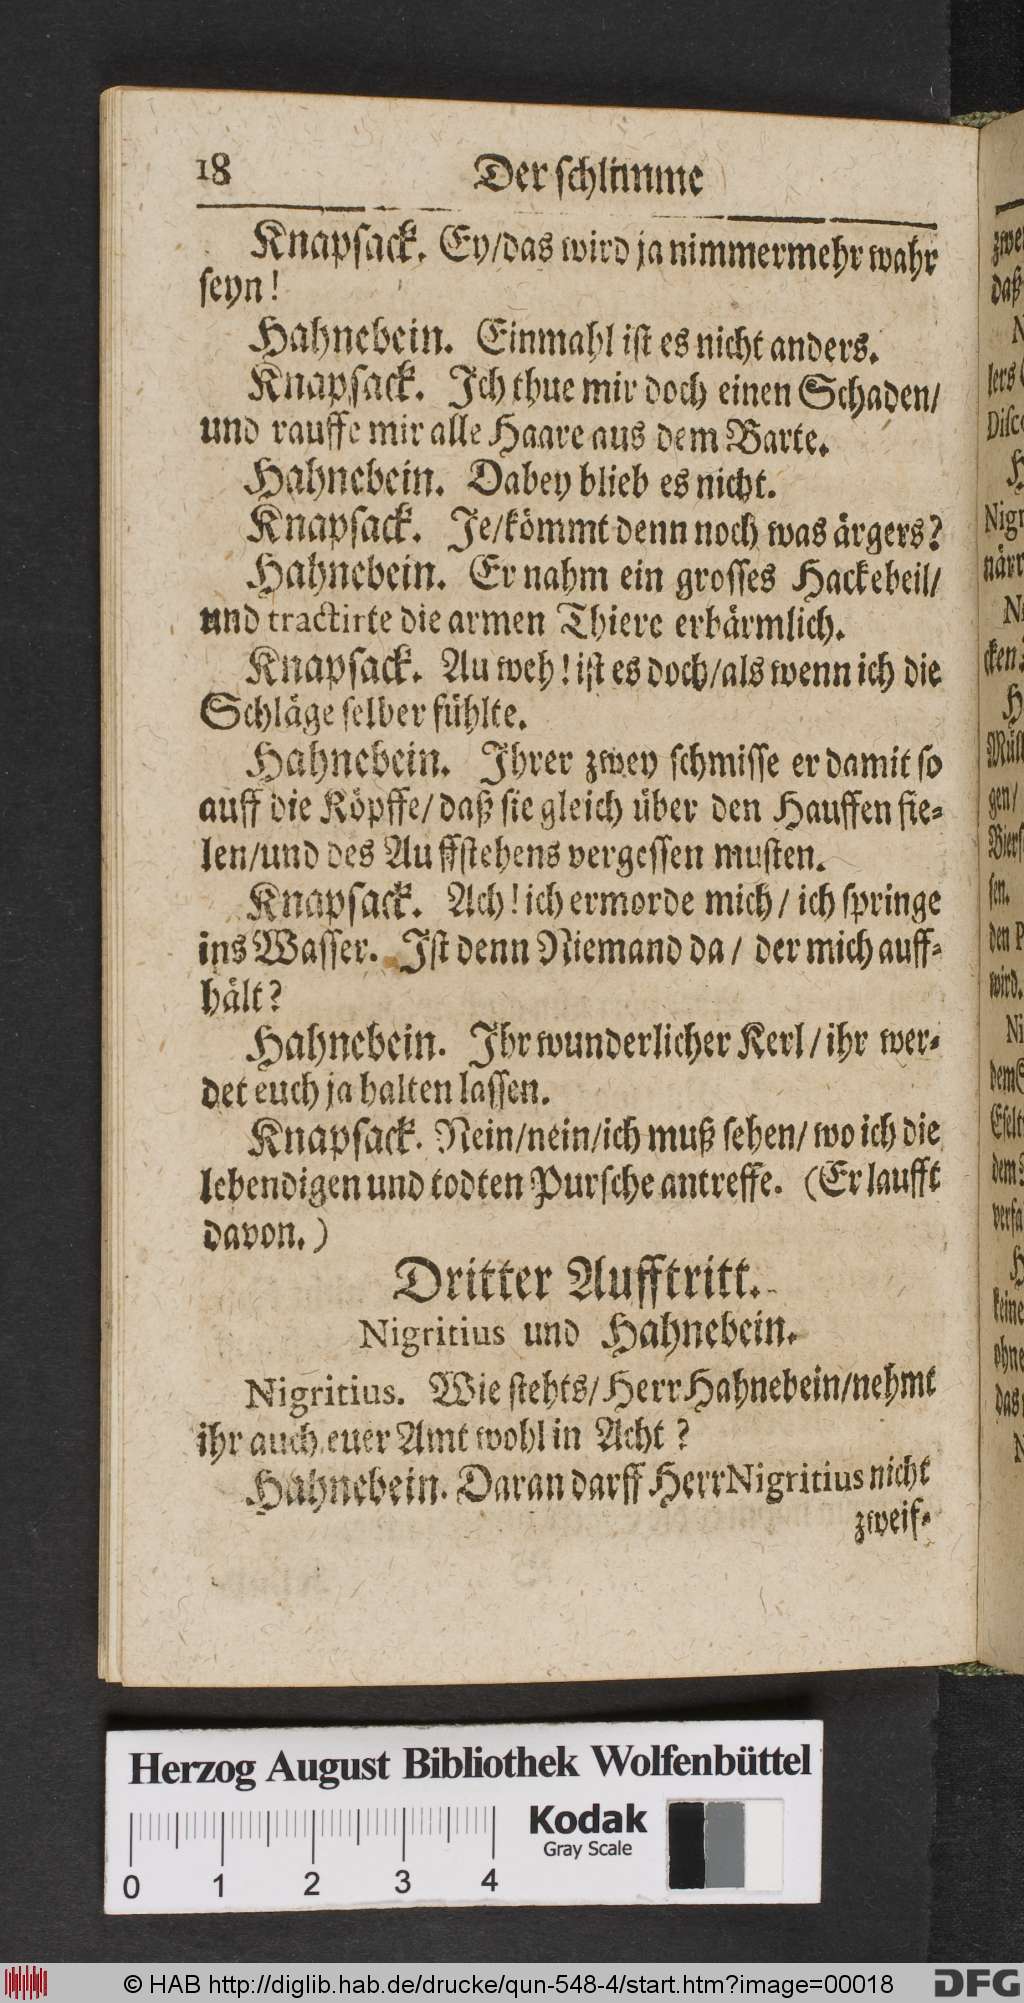 18 Der schlimme
Knapsack. Ey/das wird ja nimmermehr wahr
seyn!
Hahnebein. Einmahl ist es nicht anders.
Knapsack. Ich thue mir doch einen Schaden/
und rauffe mir alle Haare aus dem Barte.
Hahnebein. Dabey blieb es nicht.
Knapsack. Je/kömmt denn noch was ärgers?
Hahnebein. Er nahm ein grosses Hackebeil/
und tractirte die armen Thiere erbärmlich.
Knapsack. Au weh! ist es doch/als wenn ich die
Schläge selber fühlte.
Hahnebein. Ihrer zwey schmisse er damit so
auff die Köpffe/ daß sie gleich über den Hauffen fie-
len/und des Auffstehens vergessen musten.
Knapsack. Ach! ich ermorde mich/ ich springe
ins Wasser. Ist denn Niemand da/ der mich auff-
hält?
Hahnebein. Ihr wunderlicher Kerl/ihr wer-
det euch ja halten lassen.
Knapsack. Nein/nein/ich muß sehen/ wo ich die
lebendigen und todten Pursche antreffe. (Er laufft
davon.)
Dritter Aufftritt.
Nigritius und Hahnebein.
Nigritius. Wie stehts/ Herr Hahnebein/nehmt
ihr auch euer Amt wohl in Acht?
Hahnebein. Daran darff Herr Nigritius nicht
zweif-
zwe
daß
N
lers
Disc
H
Nigr
närr
N
cken
H
Mül
gen/
Biers
sen.
den P
wird.
Ni
dem
Eselt
dem
versa
H
keine
ohne
das
N
Herzog August Bibliothek Wolfenbüttel
Kodak
Gray Scale
0 1 2 3 4
© HAB http://diglib.hab.de/drucke/qun-548-4/start.htm?image=00018
DFG